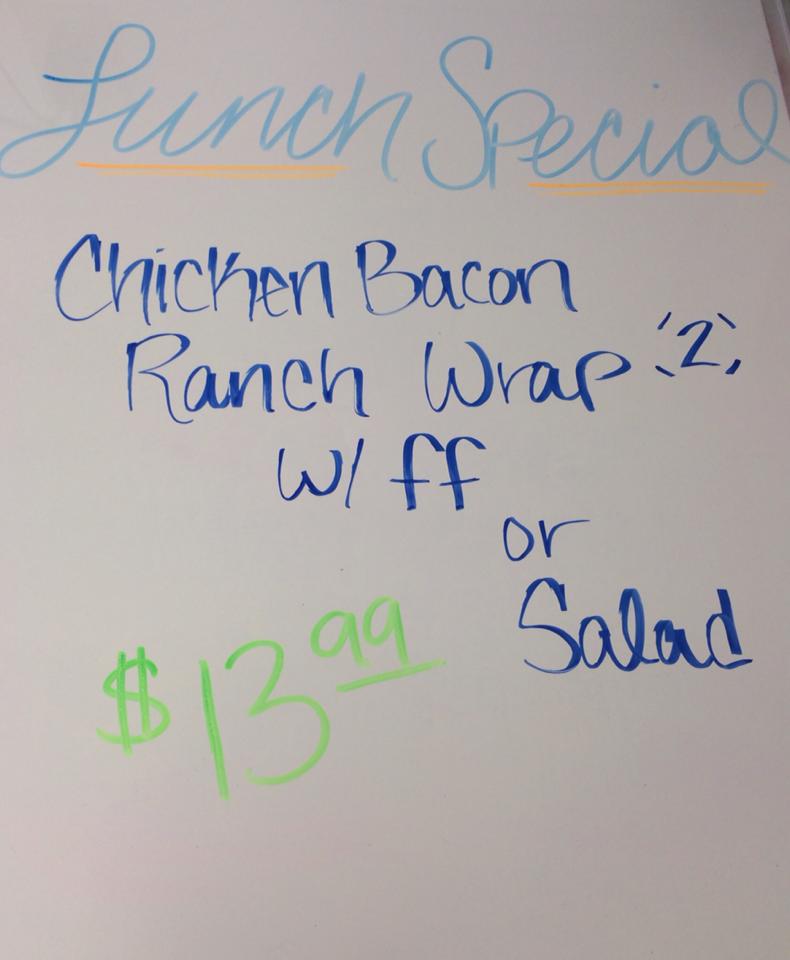 Lunch Special
Chicken Bacon
Ranch Wrap (2)
w/ ff
or
Salad
$13.99